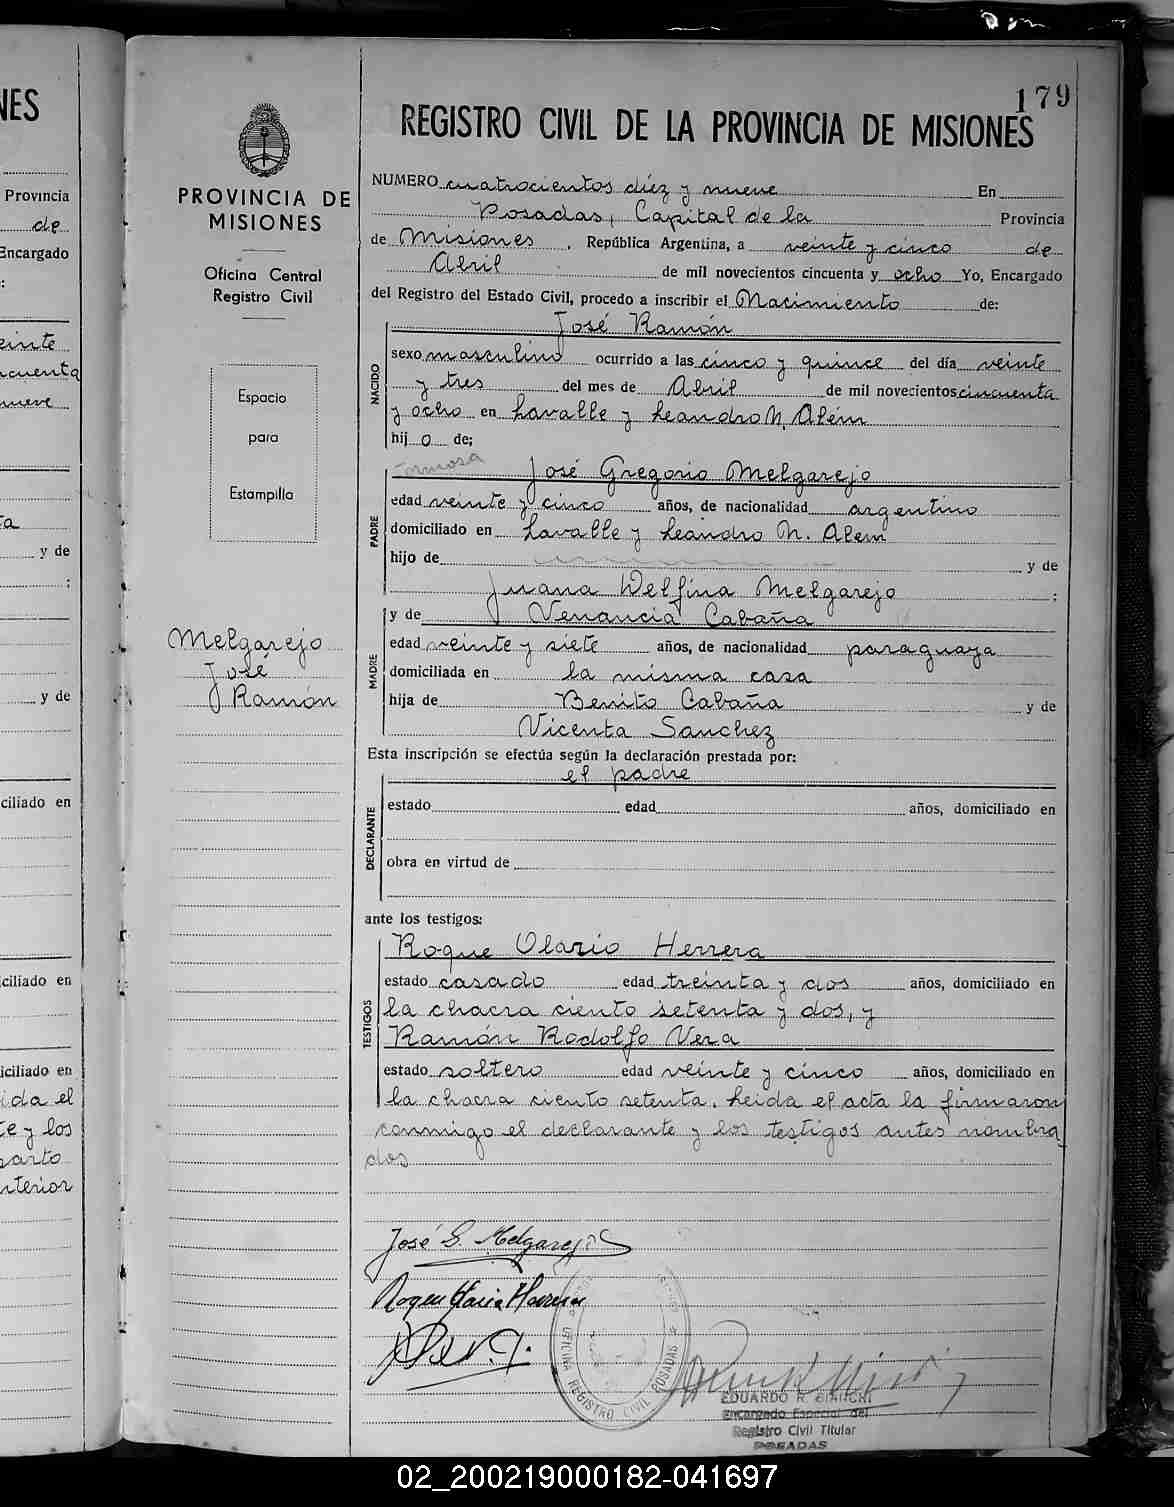 179
REGISTRO CIVIL DE LA PROVINCIA DE MISIONES
PROVINCIA DE
MISIONES
Oficina Central
Registro Civil
Espacio
para
Estampilla
Melgarejo
José
Ramón
NUMERO cuatrocientos diez y nueve En
Posadas, Capital de la Provincia
de Misiones, República Argentina, a veinte y cinco de
Abril de mil novecientos cincuenta y ocho Yo, Encargado
del Registro del Estado Civil, procedo a inscribir el Nacimiento de:
José Ramón
NACIDO
sexo masculino ocurrido a las cinco y quince del día veinte
y tres del mes de Abril de mil novecientos cincuenta
y ocho en Lavalle y Leandro N. Além
hijo de;
Formosa José Gregorio Melgarejo
PADRE
edad veinte y cinco años, de nacionalidad argentino
domiciliado en Lavalle y Leandro N. Alem
hijo de y de
Juana Delfina Melgarejo ;
y de Venancia Cabaña
MADRE
edad veinte y siete años, de nacionalidad paraguaya
domiciliada en la misma casa
hija de Benito Cabaña y de
Vicenta Sanchez
Esta inscripción se efectúa según la declaración prestada por:
el padre
DECLARANTE
estado edad años, domiciliado en
obra en virtud de
ante los testigos:
Roque Olario Herrera
TESTIGOS
estado casado edad treinta y dos años, domiciliado en
la chacra ciento setenta y dos, y
Ramón Rodolfo Vera
estado soltero edad veinte y cinco años, domiciliado en
la chacra ciento setenta. Leida el acta la firmaron
conmigo el declarante y los testigos antes nombra
dos
José G. Melgarejo
OFICINA REGISTRO CIVIL POSADAS
EDUARDO R. BIANCHI
Encargado Especial del
Registro Civil Titular
POSADAS
NES
Provincia
de
Encargado
einte
cuenta
nueve
y de
y de
ciliado en
ciliado en
iciliado en
ida el
te y los
parto
nterior
02_200219000182-041697